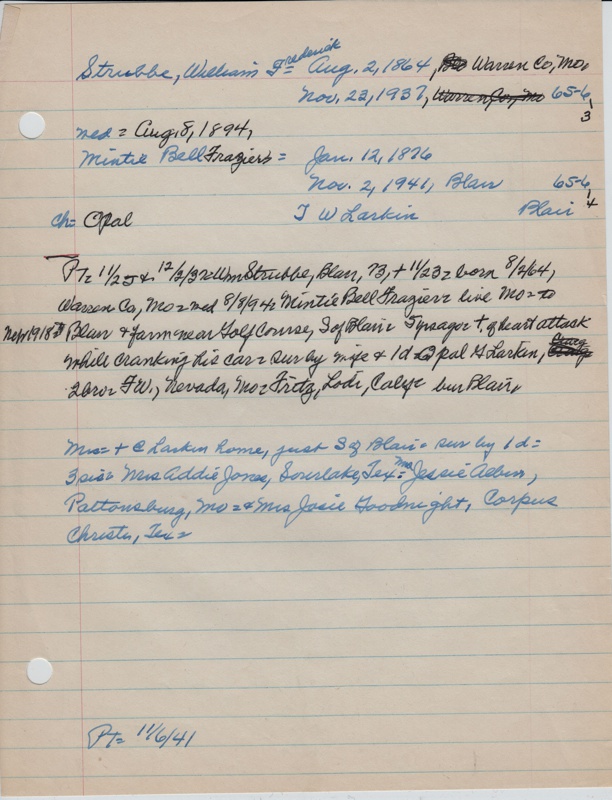 Strubbe, William Frederick Aug. 2, 1864, Warren Co, Mo,
Nov. 23, 1937, Warren Co, Mo 65-6, 3
med = Aug. 8, 1894,
Mintie Bell Frazier = Jan. 12, 1876
Nov. 2, 1941, Blair 65-6, 4
ch = Opal T W Larkin Blair
PT = 11/25 & 12/2/37 = Wm Strubbe, Blair, 73, + 11/23 = born 8/2/64,
Warren Co, Mo = med 8/8/94 = Mintie Bell Frazier = live Mo = to
Nebr 1918 = Blair + farm near Golf Course, S of Blair = 5 yrs ago = + of heart attack
while cranking his car = sur by wife & 1 d = Opal Larkin,
2 bro = F W., Nevada, Mo = Fritz, Lodi, Calif = bur Blair,
Mrs = + @ Larkin home, just S of Blair = sur by 1 d =
3 sis = Mrs Addie Jones, Sourlake, Tex = Mrs Jessie Albin,
Pattonsburg, Mo = & Mrs Josie Goodnight, Corpus
Christi, Tex =
PT = 11/6/41